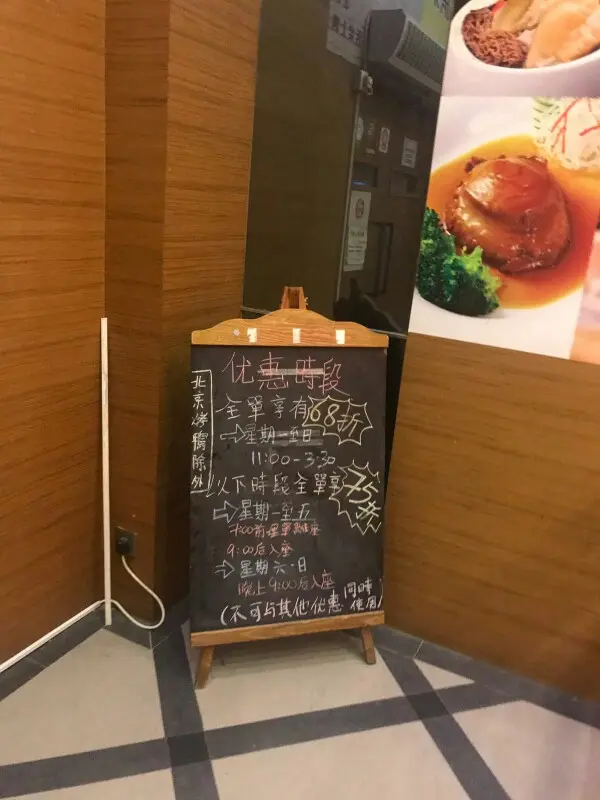 优惠時段
全單享有68折
⇨星期一至日
11:00-3:30
以下時段全單享75折
⇨星期一至五
7:00前埋單離座
9:00后入座
⇨星期六·日
晚上9:00后入座
(不可与其他优惠同時使用)
北京烤鴨除外